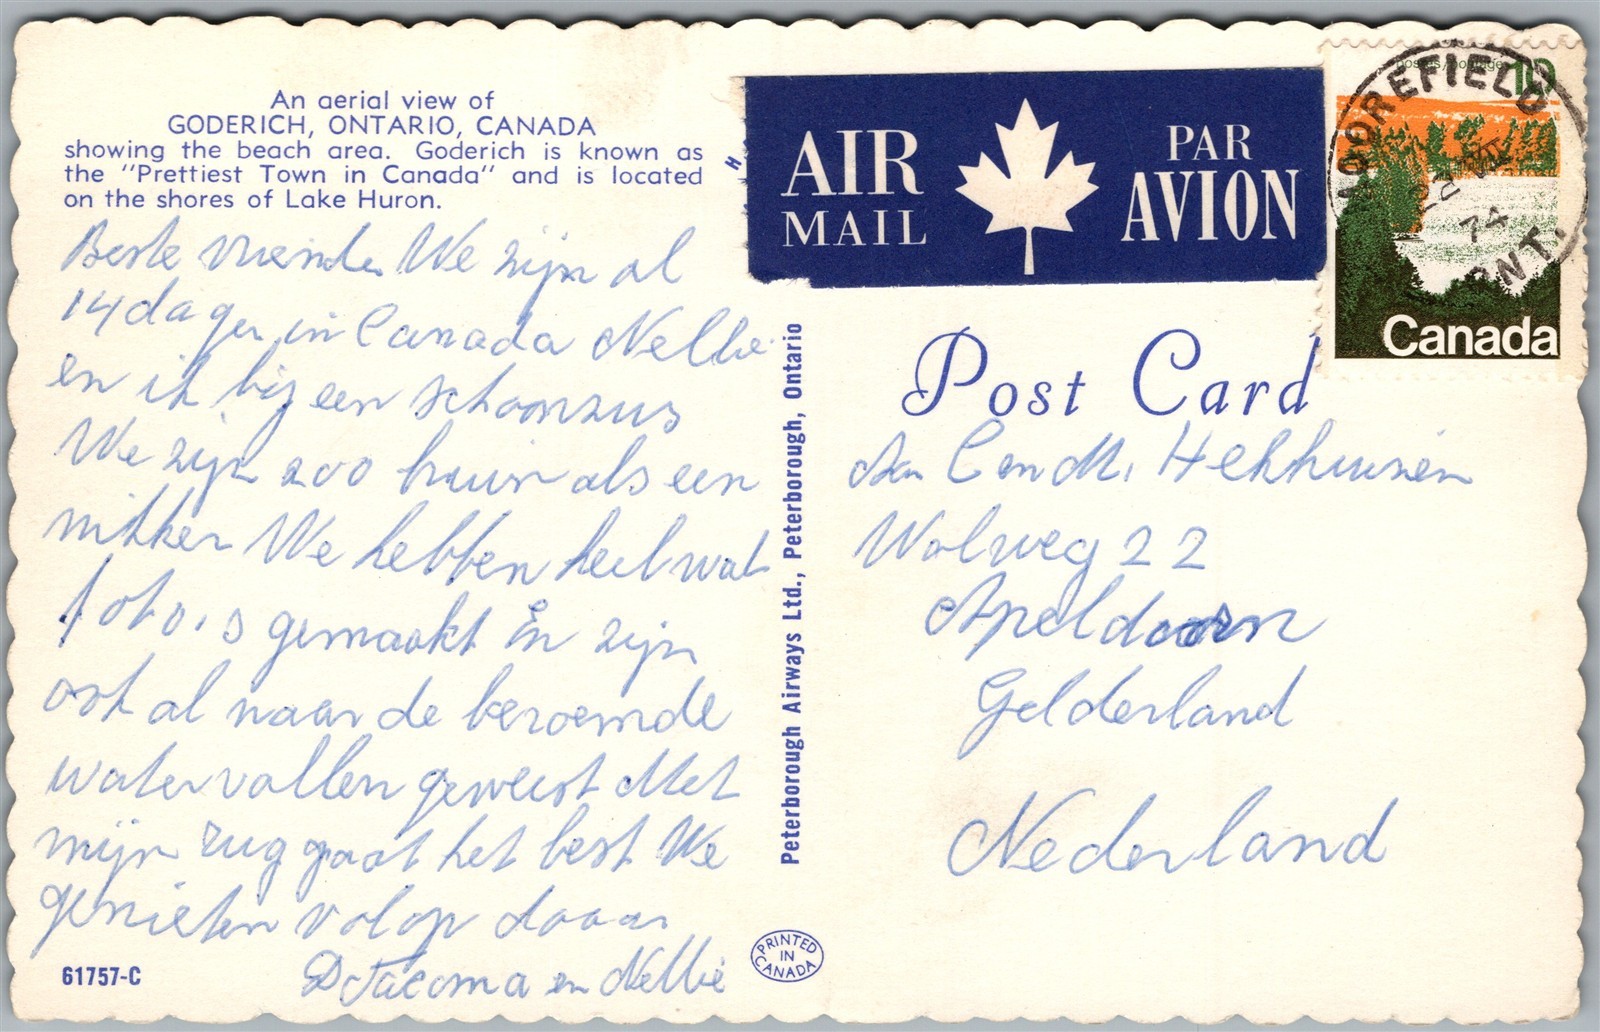 An aerial view of
GODERICH, ONTARIO, CANADA
showing the beach area. Goderich is known as
the "Prettiest Town in Canada" and is located
on the shores of Lake Huron.
Beste Vriende We zijn al
14 dager in Canada Nellie
en ik bij een schoonzus
We zijn zoo bruin als een
nikker We hebben heel wat
foto,s gemaakt En zijn
ook al naar de beroemde
watervallen geweest Met
mijn rug gaat het best We
genieten volop
Tacoma en Nellie
61757-C
Peterborough Airways Ltd., Peterborough, Ontario
PRINTED
IN
CANADA
AIR
MAIL
PAR
AVION
postes/postage 10
Canada
MOOREFIELD
22 VIII
74
ONT.
Post Card
Aan C en M. Hekhuizen
Wolweg 22
Apeldoorn
Gelderland
Nederland